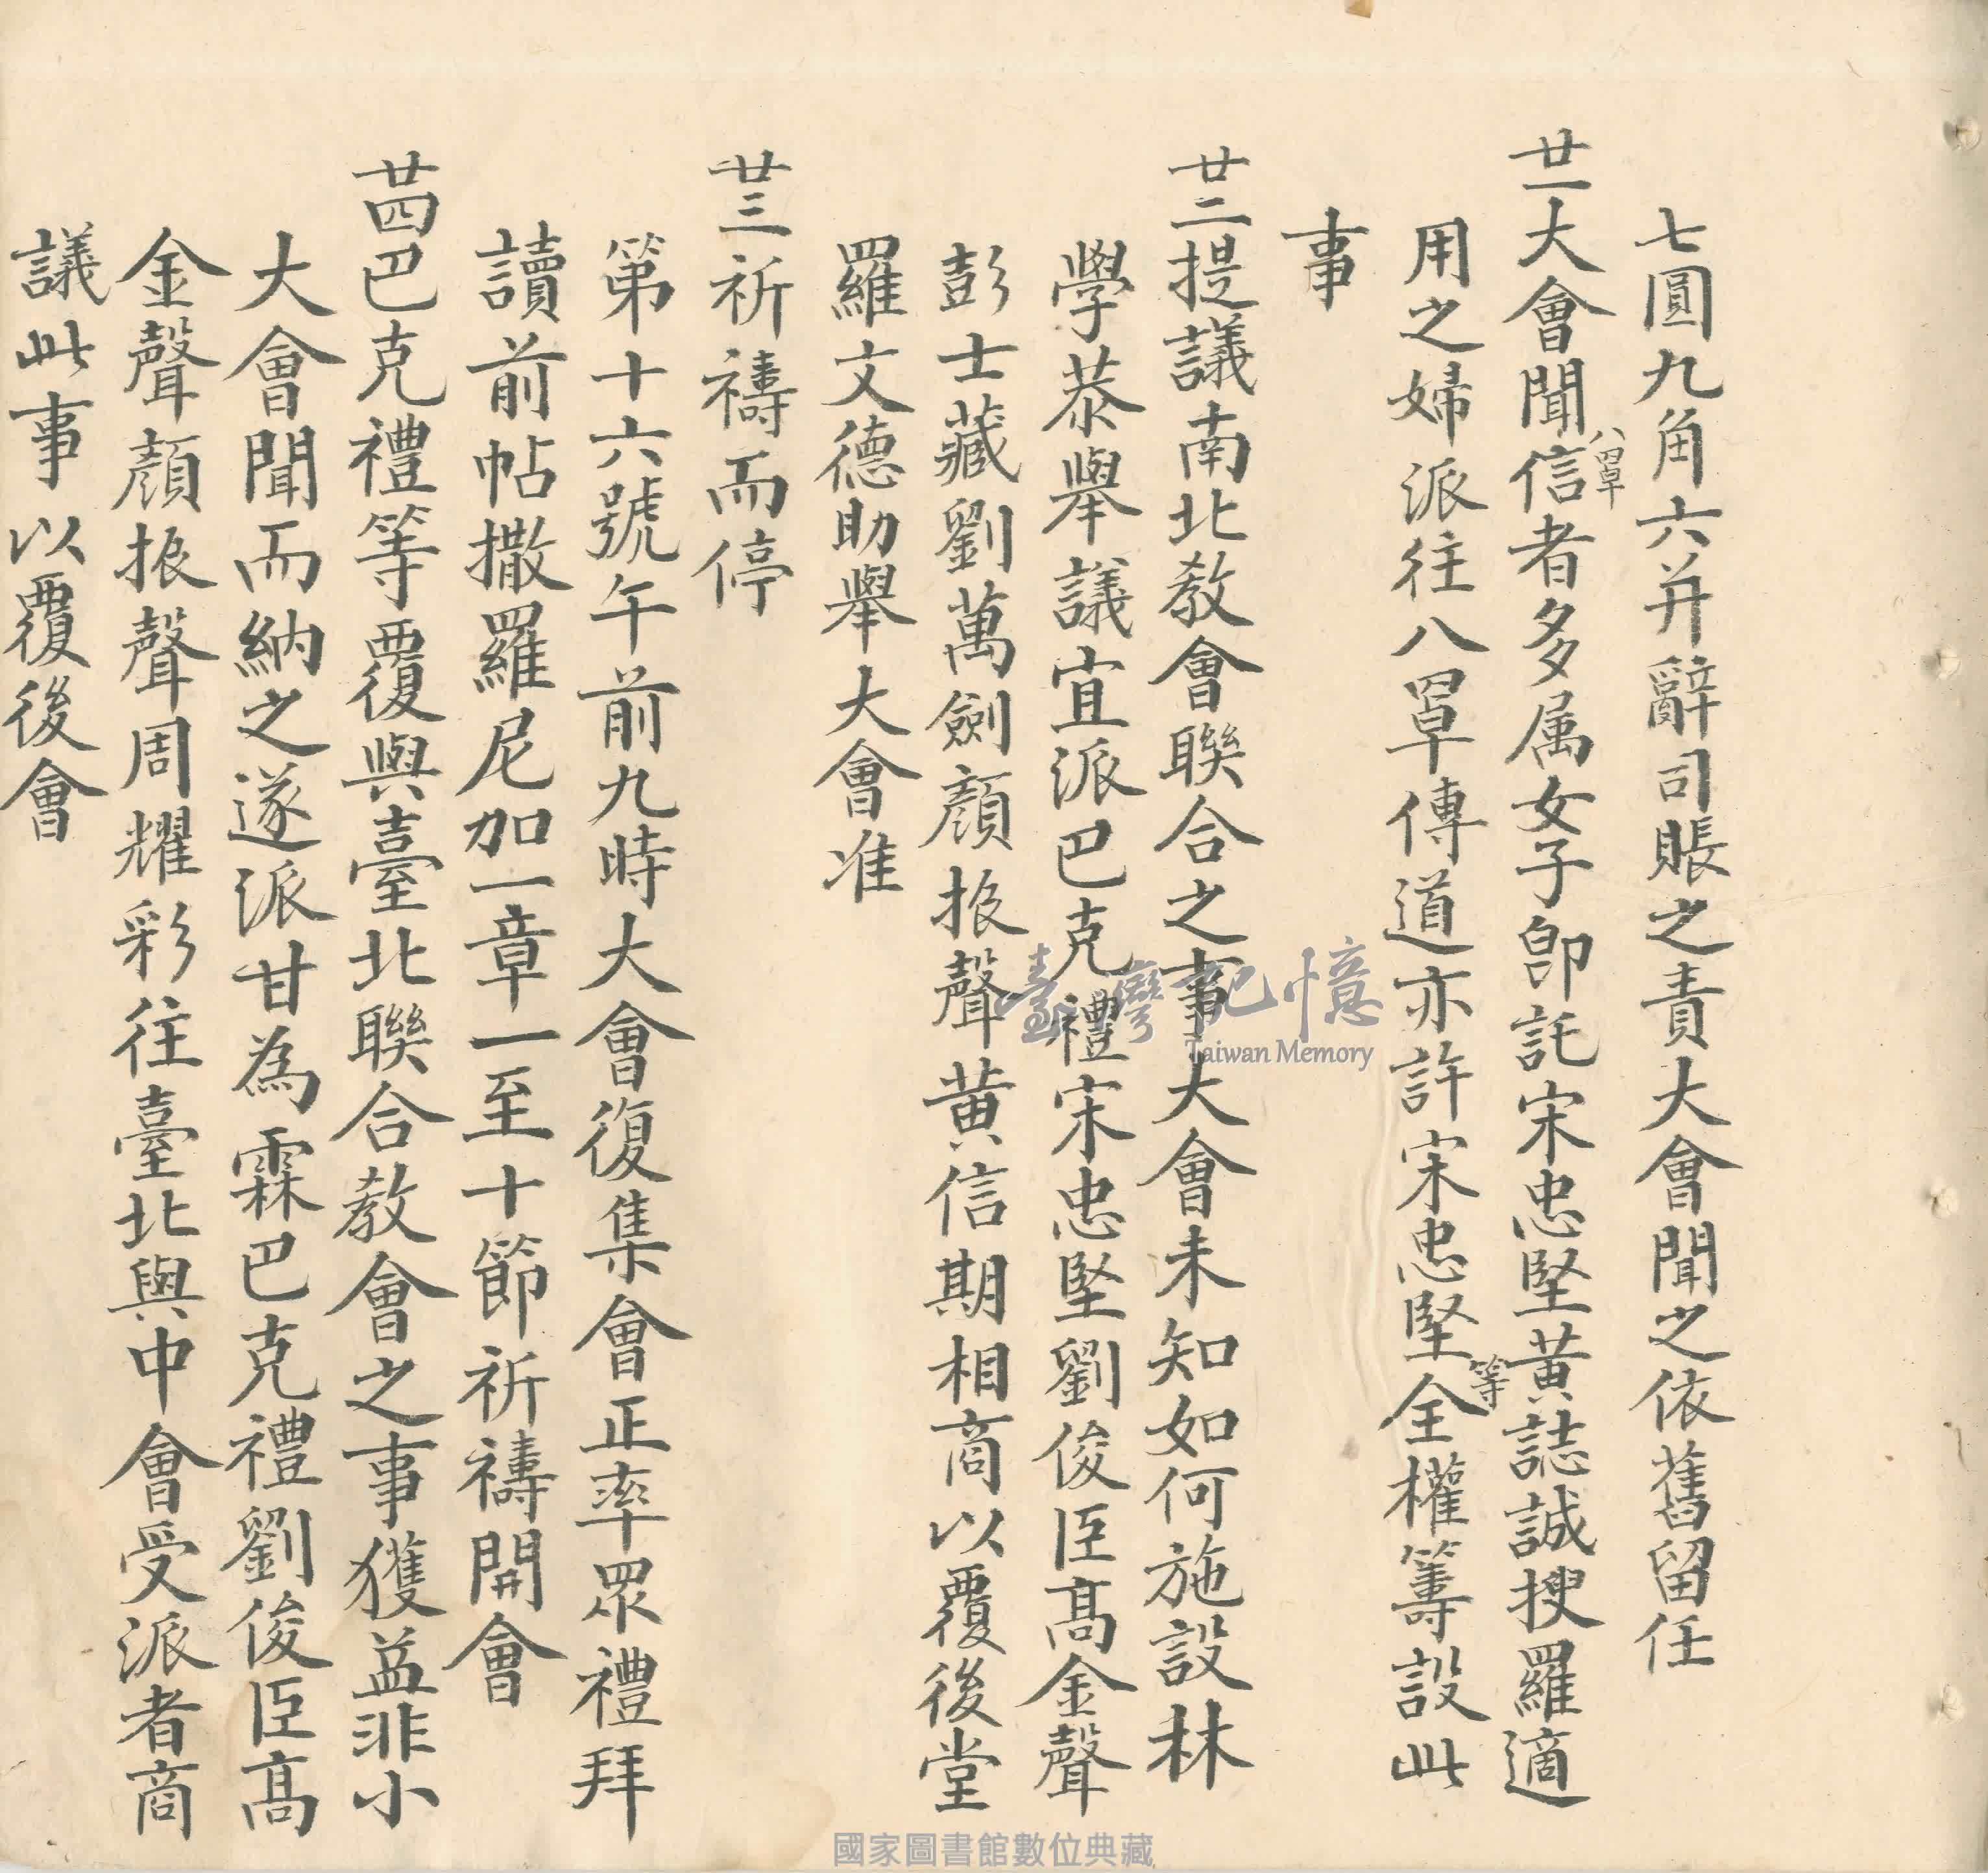 七圓九角六并辭司賬之責大會聞之依舊留任
廿一大會聞八罩信者多属女子卽託宋忠堅黃誌誠搜羅適
用之婦派往八罩傳道亦許宋忠堅等全權籌設此
事
廿二提議南北教會聯合之事大會未知如何施設林
學恭舉議宜派巴克禮宋忠堅劉俊臣高金聲
彭士藏劉萬劍顏振聲黃信期相商以覆後堂
羅文德助舉大會准
廿三祈禱而停
第十六號午前九時大會復集會正率眾禮拜
讀前帖撒羅尼加一章一至十節祈禱開會
廿四巴克禮等覆與臺北聯合教會之事獲益非小
大會聞而納之遂派甘為霖巴克禮劉俊臣高
金聲顏振聲周耀彩往臺北與中會受派者商
議此事以覆後會
臺灣記憶
Taiwan Memory
國家圖書館數位典藏